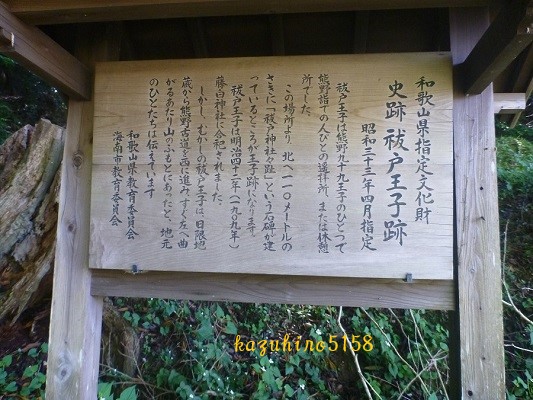 和歌山県指定文化財
史跡 祓戸王子跡
昭和三十三年四月指定
祓戸王子は熊野九十九王子のひとつで
熊野詣での人びとの遥拝所、または休憩
所でした。
この場所より、北へ一一〇メートルの
さきに「祓戸神社々趾」という石碑が建
っているところが王子跡になります。
祓戸王子は明治四十二年(一九〇九年)
藤白神社に合祀されました。
しかし、むかしの祓戸王子は、日限地
蔵から熊野古道を西に進み、すぐ左へ曲
がるあたり山のふもとにあったと、地元
のひとたちは伝えています
和歌山県教育委員会
海南市教育委員会
kazuhiro5158